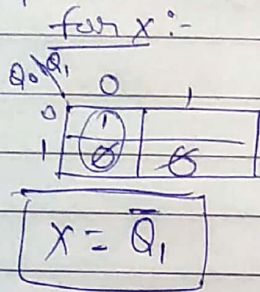 for X :-
Q₀ \ Q₁ 0 1
0 1
1 0 0
X = Q̄₁